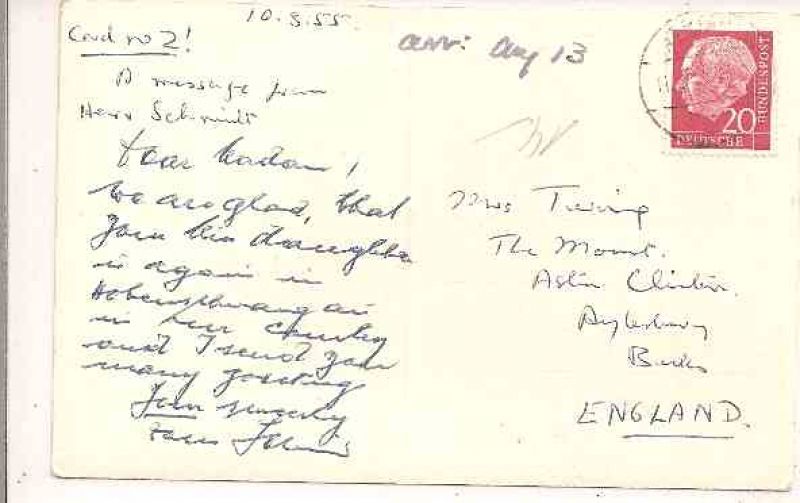 10.8.55
Card no 2!
arr: Aug 13
A message from
Herr Schmidt
Dear Madam!
We are glad, that
your daughter
is again in
Hohenschwangau
in our country
and I send you
many greetings
Your sincerely
Mrs Twing
The Mount.
Aston Clinton.
Aylesbury
Bucks
ENGLAND.
20
DEUTSCHE
BUNDESPOST